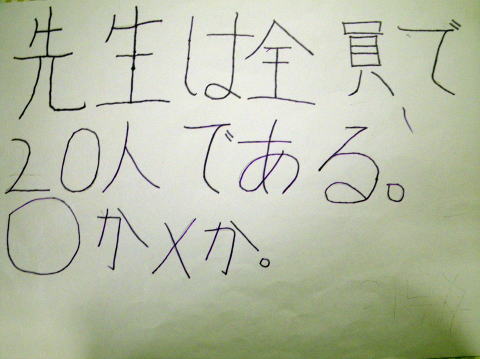 先生は全員で、
20人である。
○か×か。